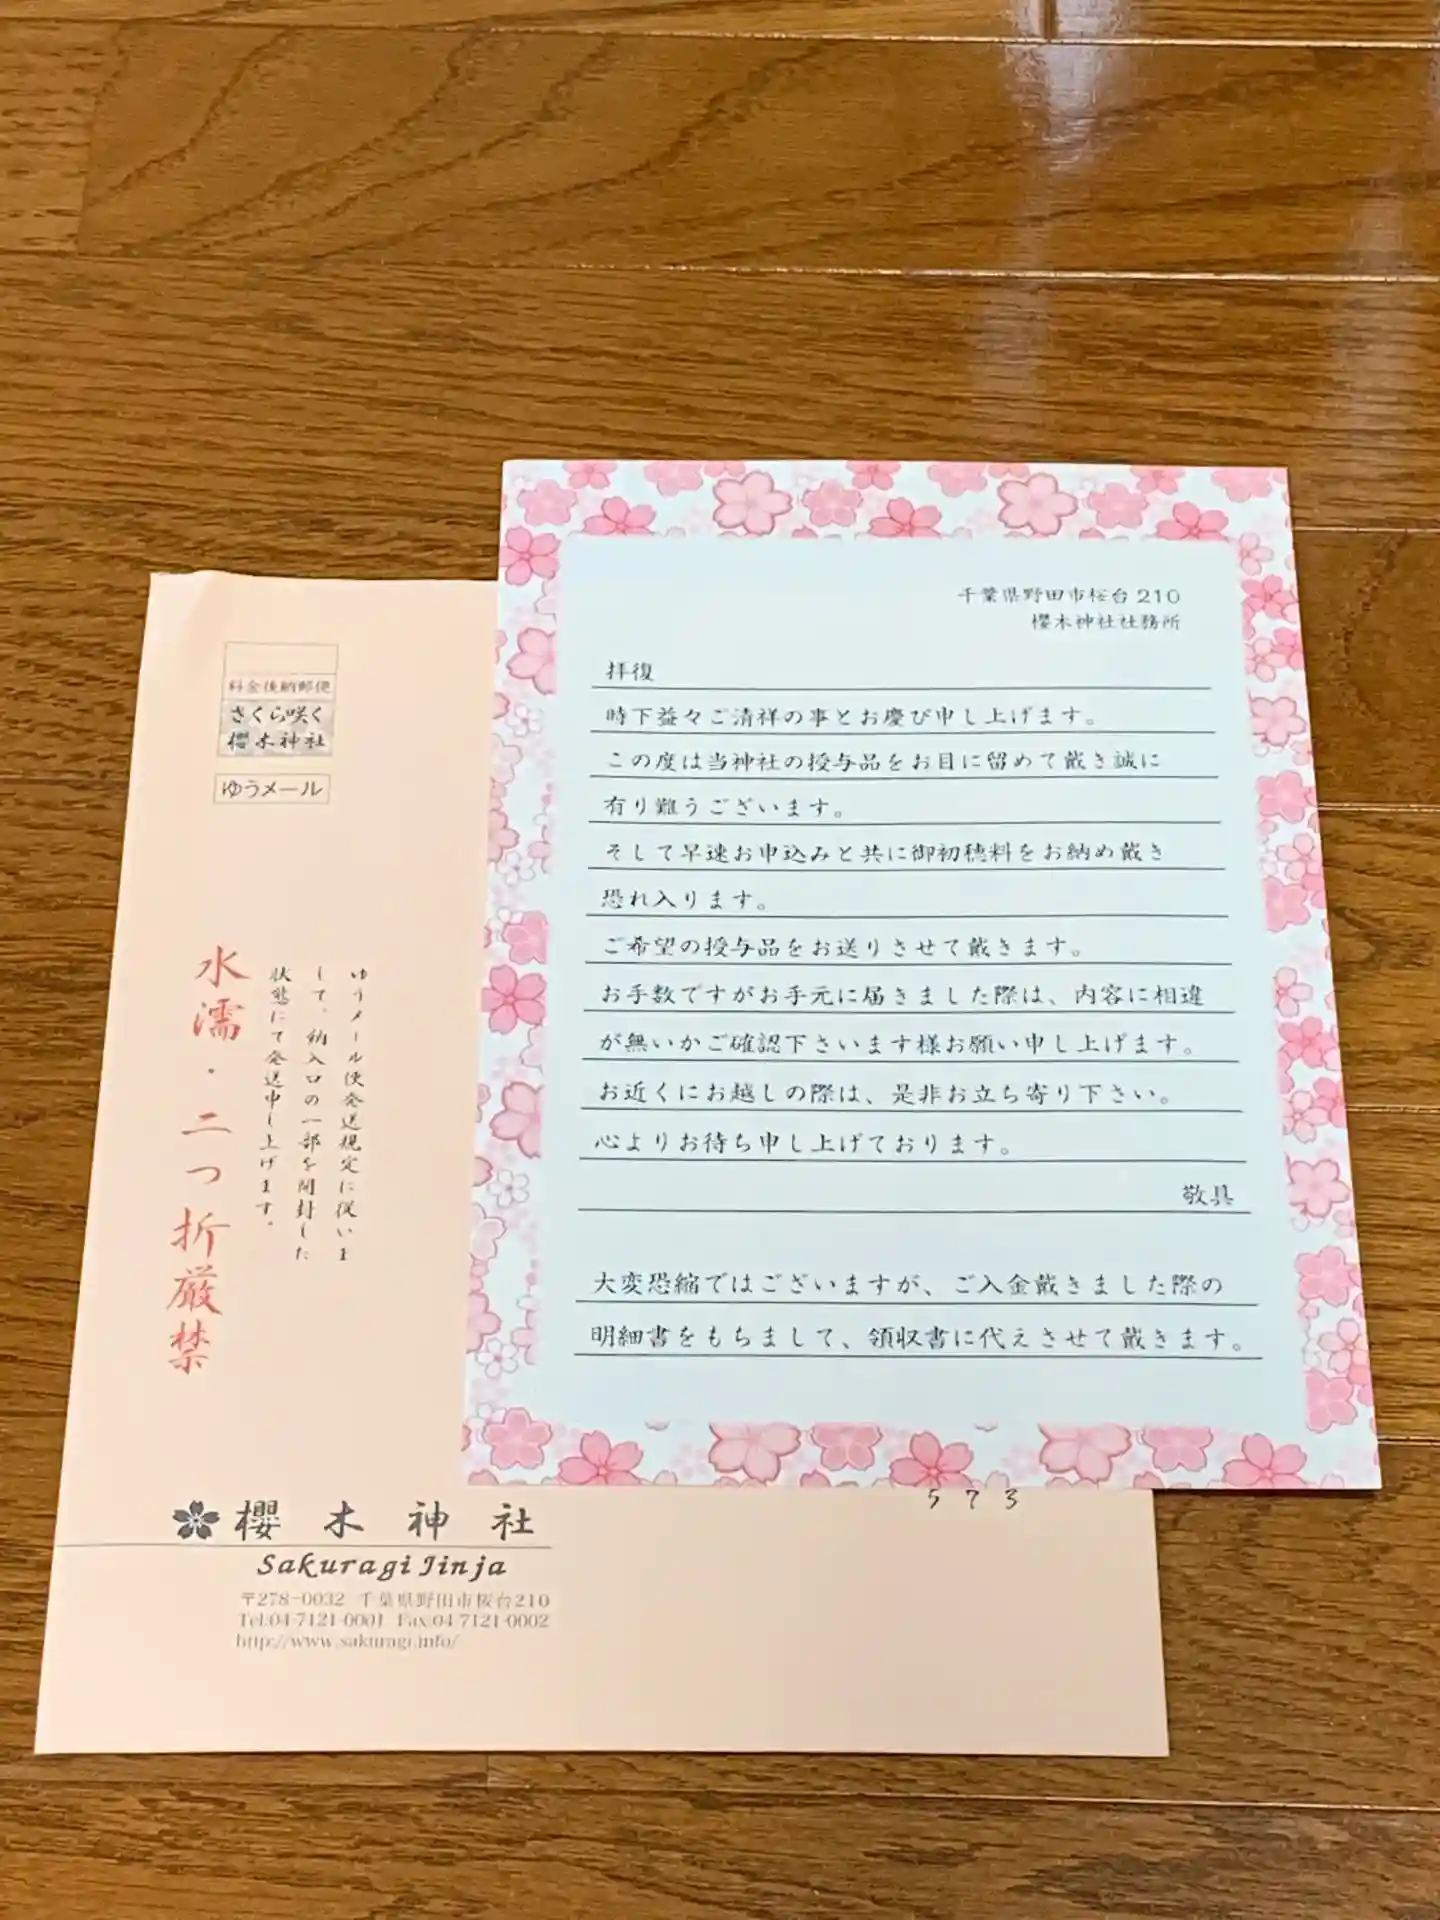 料金後納郵便
さくら咲く
櫻木神社
ゆうメール
ゆうメール便発送規定に従いま
して、納入口の一部を開封した
状態にて発送申し上げます。
水濡・二つ折厳禁
櫻木神社
Sakuragi Jinja
〒278-0032 千葉県野田市桜台210
Tel:04-7121-0001 Fax:04-7121-0002
http://www.sakuragi.info/
千葉県野田市桜台210
櫻木神社社務所
拝復
時下益々ご清祥の事とお慶び申し上げます。
この度は当神社の授与品をお目に留めて戴き誠に
有り難うございます。
そして早速お申込みと共に御初穂料をお納め戴き
恐れ入ります。
ご希望の授与品をお送りさせて戴きます。
お手数ですがお手元に届きました際は、内容に相違
が無いかご確認下さいます様お願い申し上げます。
お近くにお越しの際は、是非お立ち寄り下さい。
心よりお待ち申し上げております。
敬具
大変恐縮ではございますが、ご入金戴きました際の
明細書をもちまして、領収書に代えさせて戴きます。
573